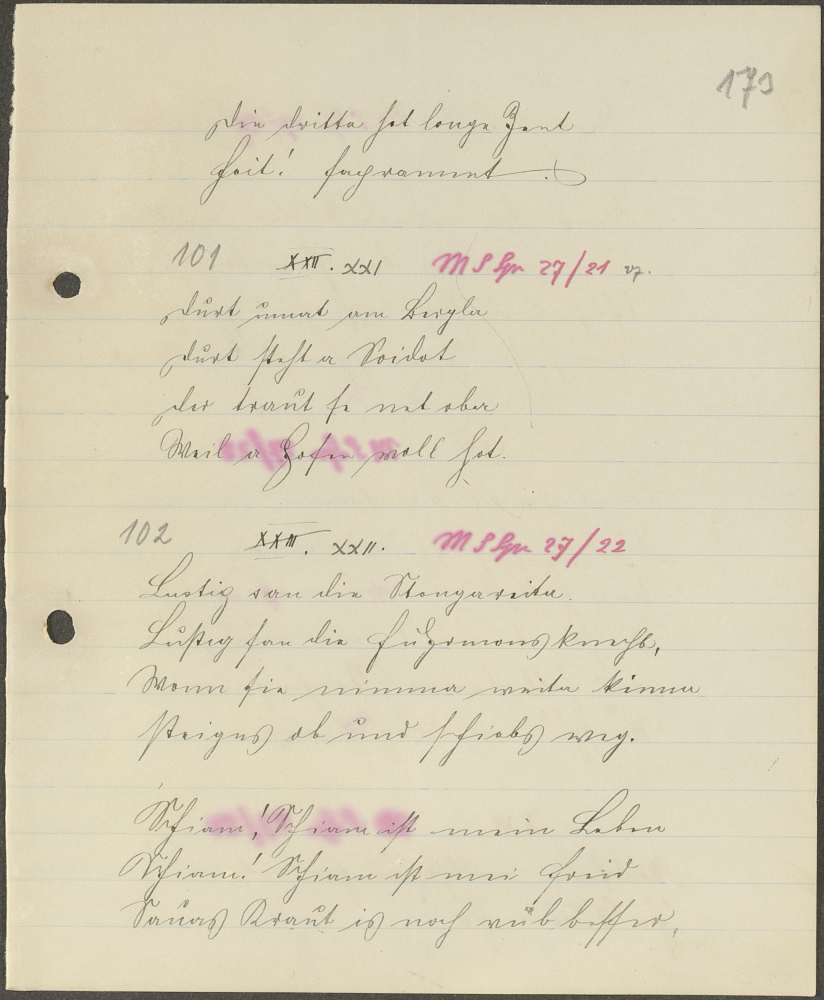 179
Die dritta hot longe Zent
hoit! sapprament.
101 XXIII. XXI MS Spr 27/21 vz.
Durt unat am Bergla
durt steht a Soidot
der traut se net oba
Weil a Hosen voll hot.
102 XXIII. XXII. MS Spr 27/22
Lustig san die Stongareita.
Lustig san die Fuhrmonsknecht,
Wonn sie nimma weita kinna
steigns ob und schiebs weg.
Schiam! Schiam ist mein Leben
Schiam! Schiam ist mei Freid
Sauas Kraut is noch besser,